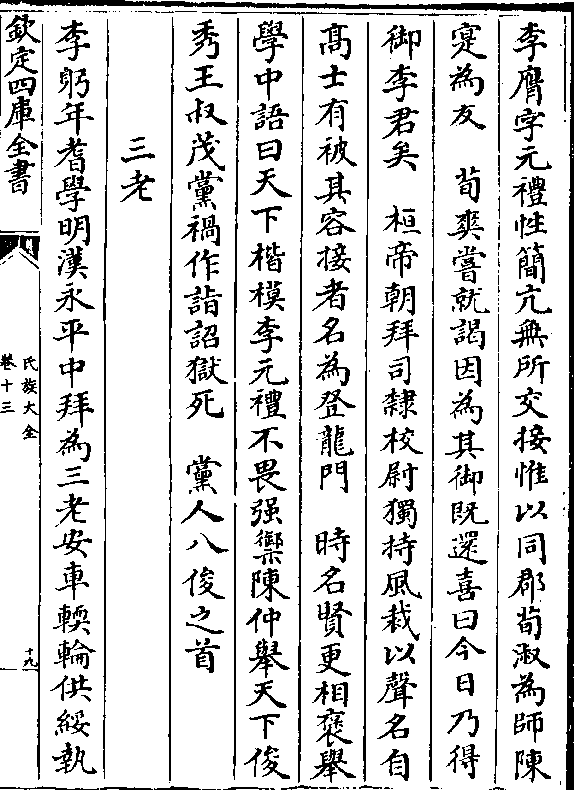 李膺字元禮性簡亢無所交接惟以同郡荀淑為師陳
寔為友　荀爽嘗就謁因為其御既還喜曰今日乃得
御李君矣　桓帝朝拜司隸校尉獨持風裁以聲名自
髙士有被其容接者名為登龍門　時名賢更相褒舉
學中語曰天下楷模李元禮不畏强禦陳仲舉天下俊
秀王叔茂黨禍作詣詔獄死　黨人八俊之首
三老
李躬年耆學明漢永平中拜為三老安車輭輪供綏執
欽定四庫全書
氏族大全
卷十三
十九